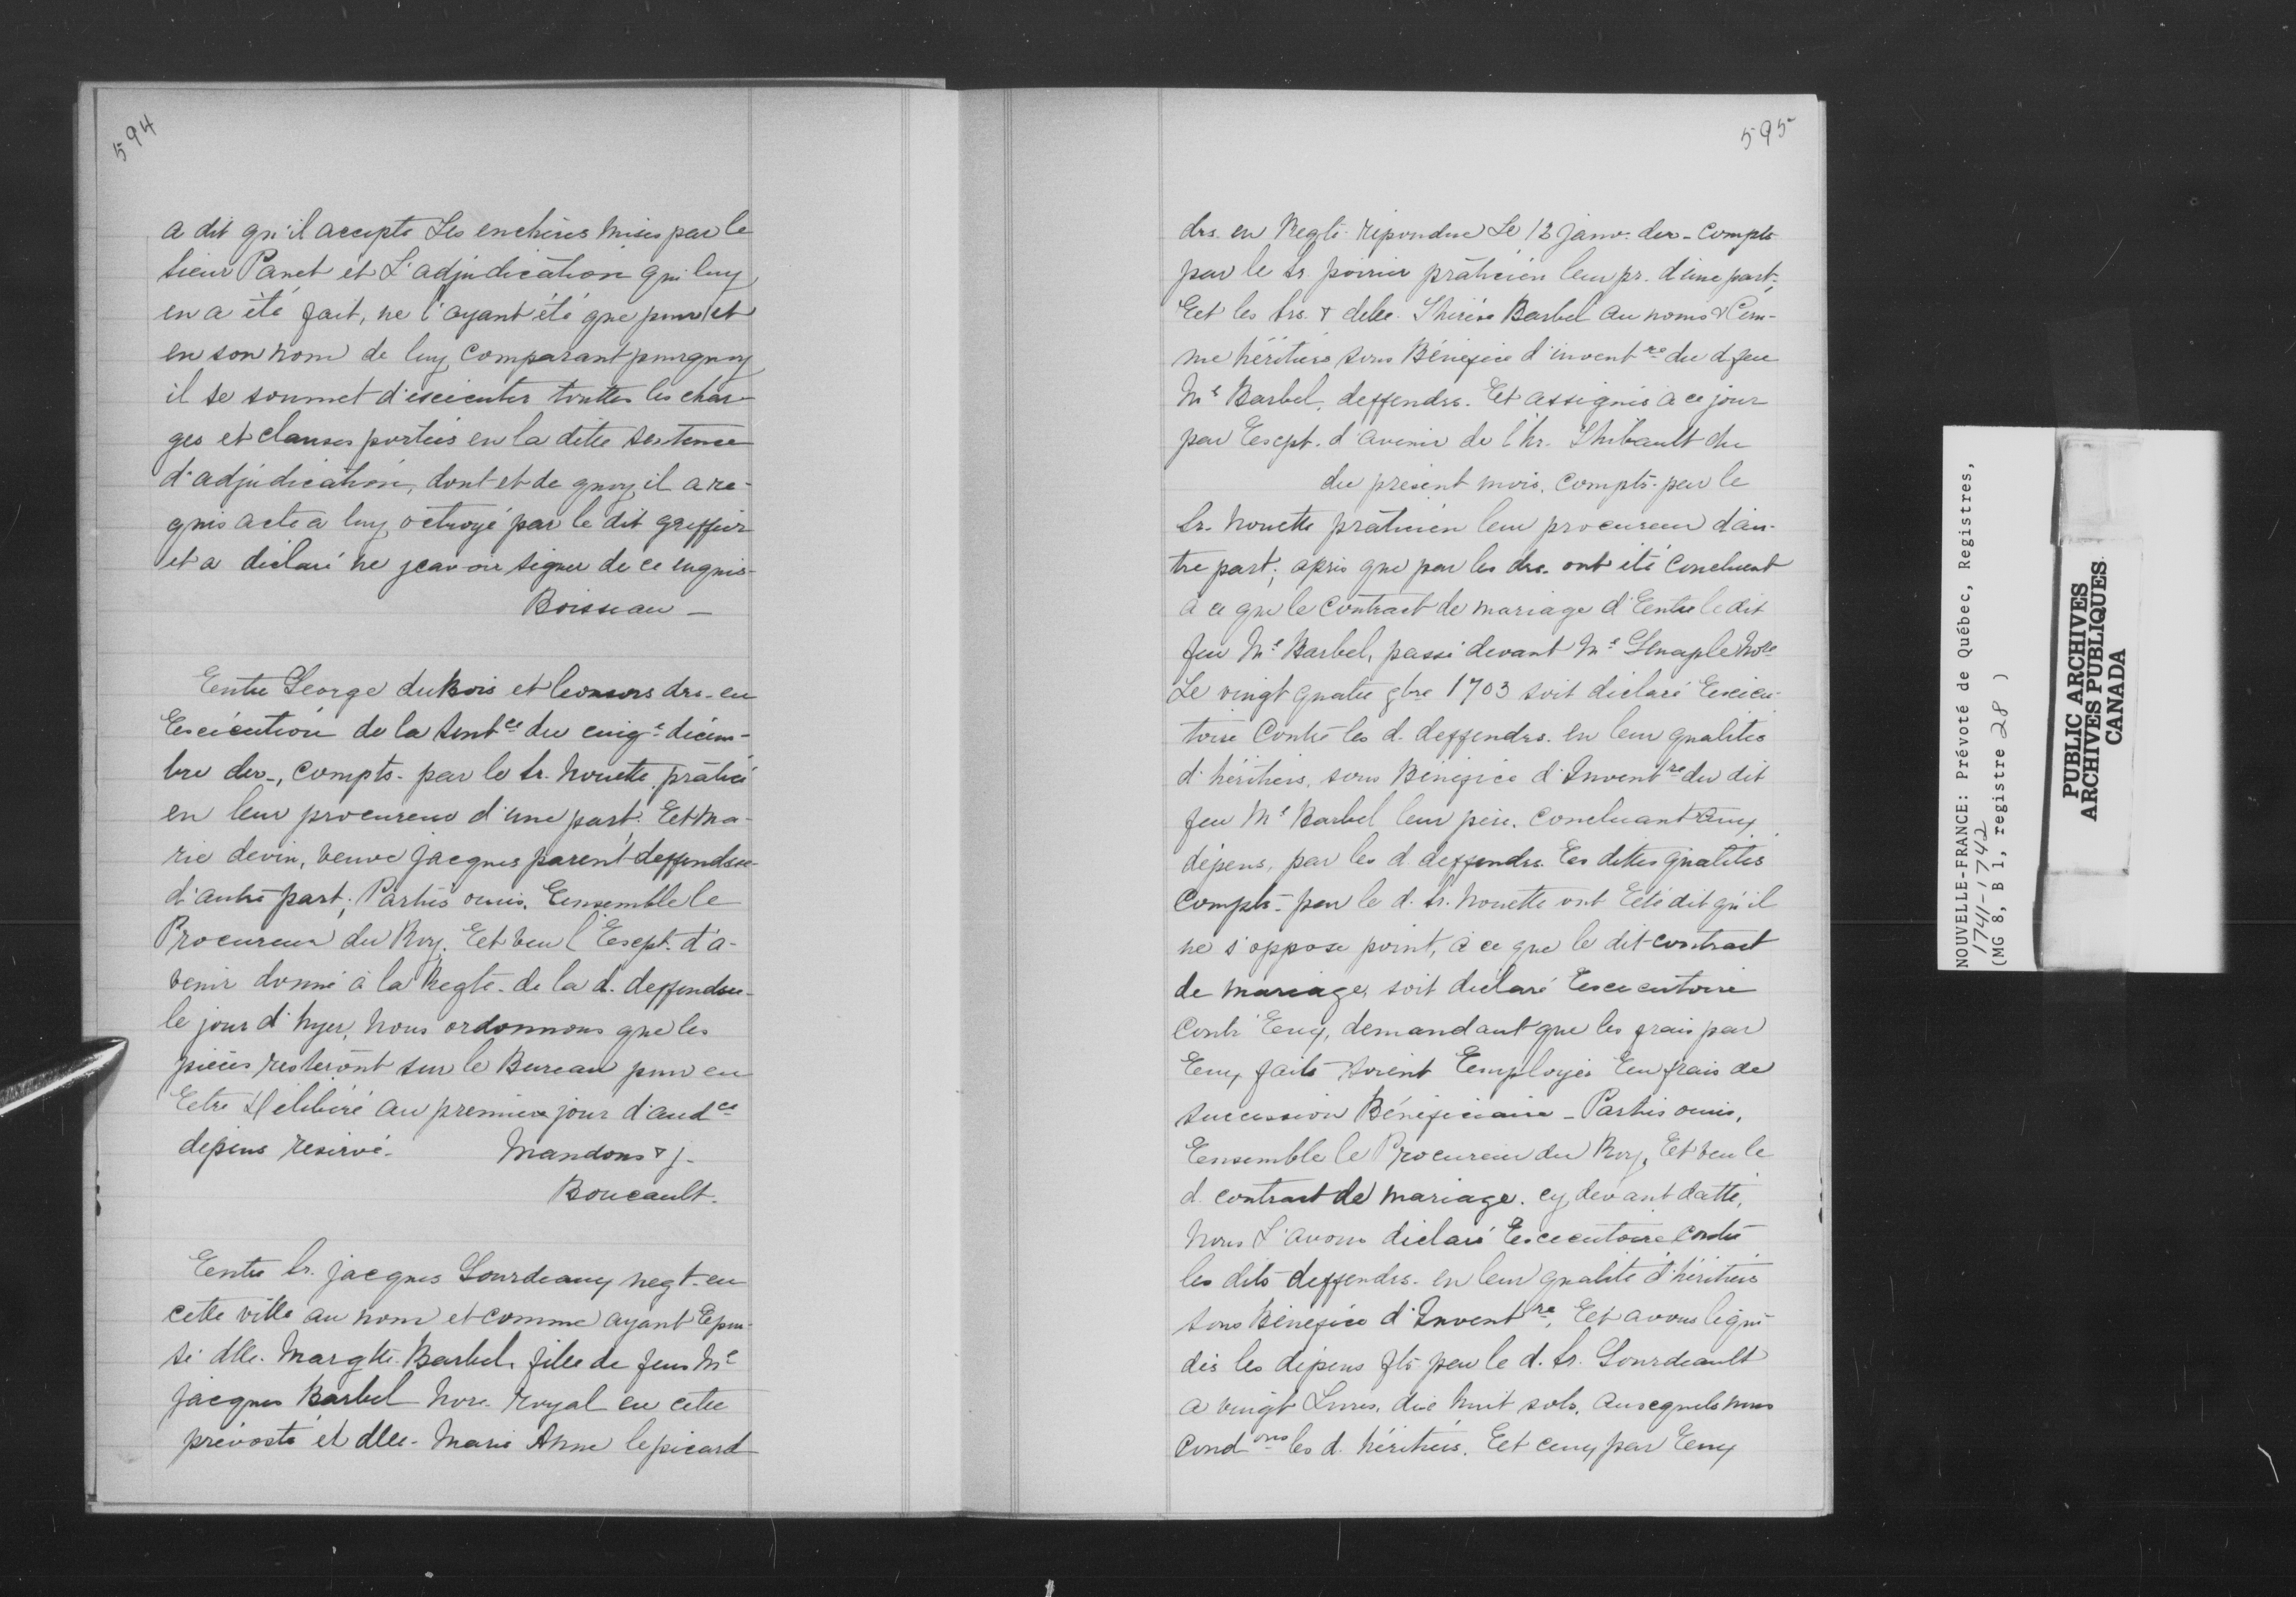 594
a dit qu'il accepte Les enchères mises par le
sieur Panet et L'adjudication qui luy
en a été fait, ne l'ayant été que pour et
en son nom de luy comparant pourquoy
il se soumet d'exécuter touttes les char-
ges et clauses portées en la ditte sentence
d'adjudication, dont et de quoy il a re-
quis acte a luy octroyé par le dit greffier
et a déclaré ne sçavoir signer de ce enquis-
Boisseau -
Eentre George dubois et consors drs. en
Eexécution de la sentce du cinqe décem-
bre der-, compts- par le sr. Nouette pratici
en leur procureur d'une part. Eet Ma-
rie devin, veuve Jacques parent deffendsse-
d'autre part; Parties ouies, Eensemble le
Procureur du Roy. Eet veu l'Eexpt. d'a-
venir donné à la Reqte. de la d. deffendsse-
le jour d'hyer, Nous ordonnons que les
pièces resteront sur le Bureau pour en
Eetre Délibéré au premier jour d'audce
dépens reservé- Mandons & j-
Boucault.
Eentre sr. Jacques Gourdeaux negt. en
cette ville au nom et comme ayant Epou-
sé dlle. Margte. Barbel, fille de feus Me
Jacques Barbel Nore. royal en cette
prévosté et dlle- Marie Anne lepicard
595
drs. en Reqte. répondue Le 12 janv. der- compts
par le sr. poirier praticien leur pr. d'une part,
Eet les srs. & delle. Thérèse Barbel au noms & Com-
me héritiers sous Bénéfice d'inventre du d. feu
Me Barbel, deffendrs. Et assignés a ce jour
par Eexpt. d'avenir de l'hr. Thibault du
du présent mois, compts- par le
sr. Nouette praticien leur procureur d'au-
tre part; après que par les drs. ont été concluent
a ce que le contract de mariage d'Eentre le dit
feu Me Barbel, passé devant Me Genaple Nore
Le vingt quatre 9bre 1703 soit déclaré Eexécu-
toire Contre les d. deffendrs. en leur qualités
d'héritiers, sous Bénéfice d'Inventre du dit
feu Me Barbel leur père. Concluant aux
dépens, par les d. deffendrs. Ees dittes qualités
compts- par le d. sr. Nouette ont Eété dit qu'il
ne s'oppose point, à ce que le dit contract
de mariage, soit déclaré Eexecutoire
contr'Eeux, demandant que les frais par
Eeux faits soient Eemployés Een frais de
succession Bénéficiaire - Parties ouies,
Eensemble le Procureur du Roy, Eet veu le
d. contract de mariage. cy devant datté,
Nous L'avons déclaré Eexecutoire contre
les dits deffendrs. en leur qualité d'héritiers
sous Bénéfice d'Inventre, Eet avons liqui-
dés les dépens fts- par le d. sr. Gourdeault
a vingt Livres, dix huit sols, auxquels nous
Condons les d. héritiers. Eet ceux par Eeux
NOUVELLE-FRANCE: Prévoté de Québec, Registres,
1741-1742
(MG 8, B 1, registre 28 )
PUBLIC ARCHIVES
ARCHIVES PUBLIQUES
CANADA